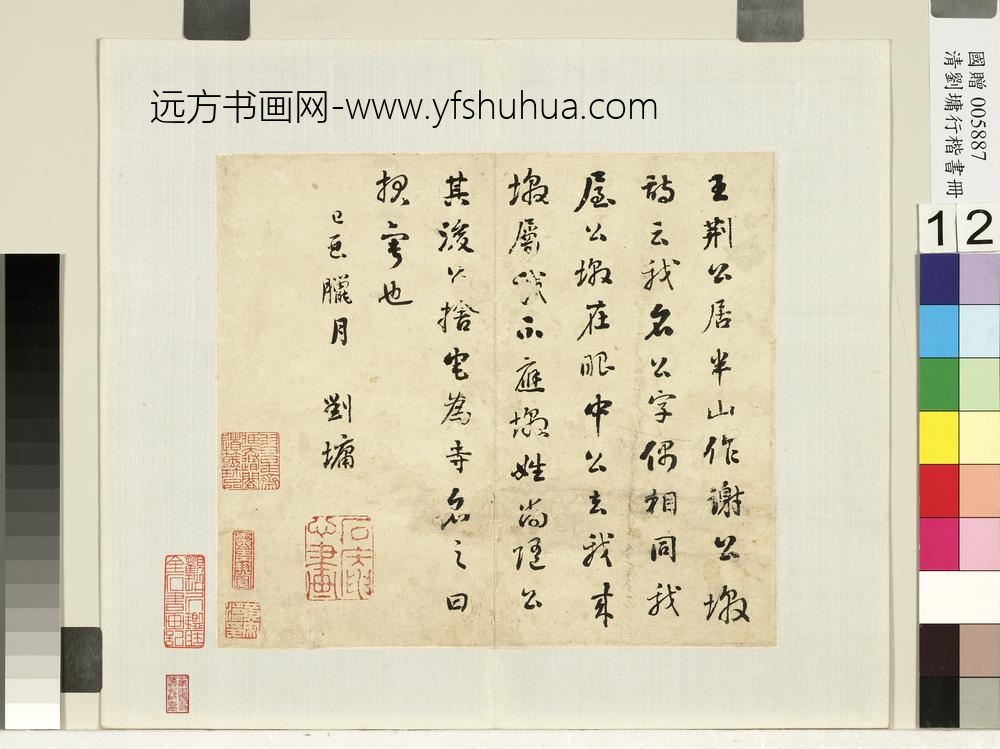 远方书画网-www.yfshuhua.com
國贈 005887
清劉墉行楷書冊
12
王荊公居半山作謝公墩
詩云我名公字偶相同我
屋公墩在眼中公去我來
墩屬我不應墩姓尚隨公
其後公捨宅為寺名之曰
報寧也
己亥臘月 劉墉